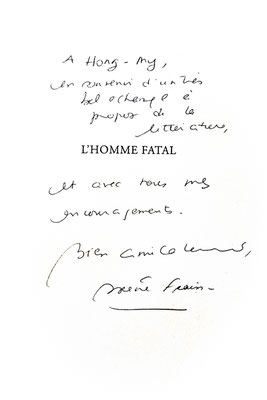 A Hong-My,
en souvenir d'un très
bel échange à
propos de la
littérature,
L'HOMME FATAL
et avec tous mes
encouragements.
Bien amicalement,
Irène Frain